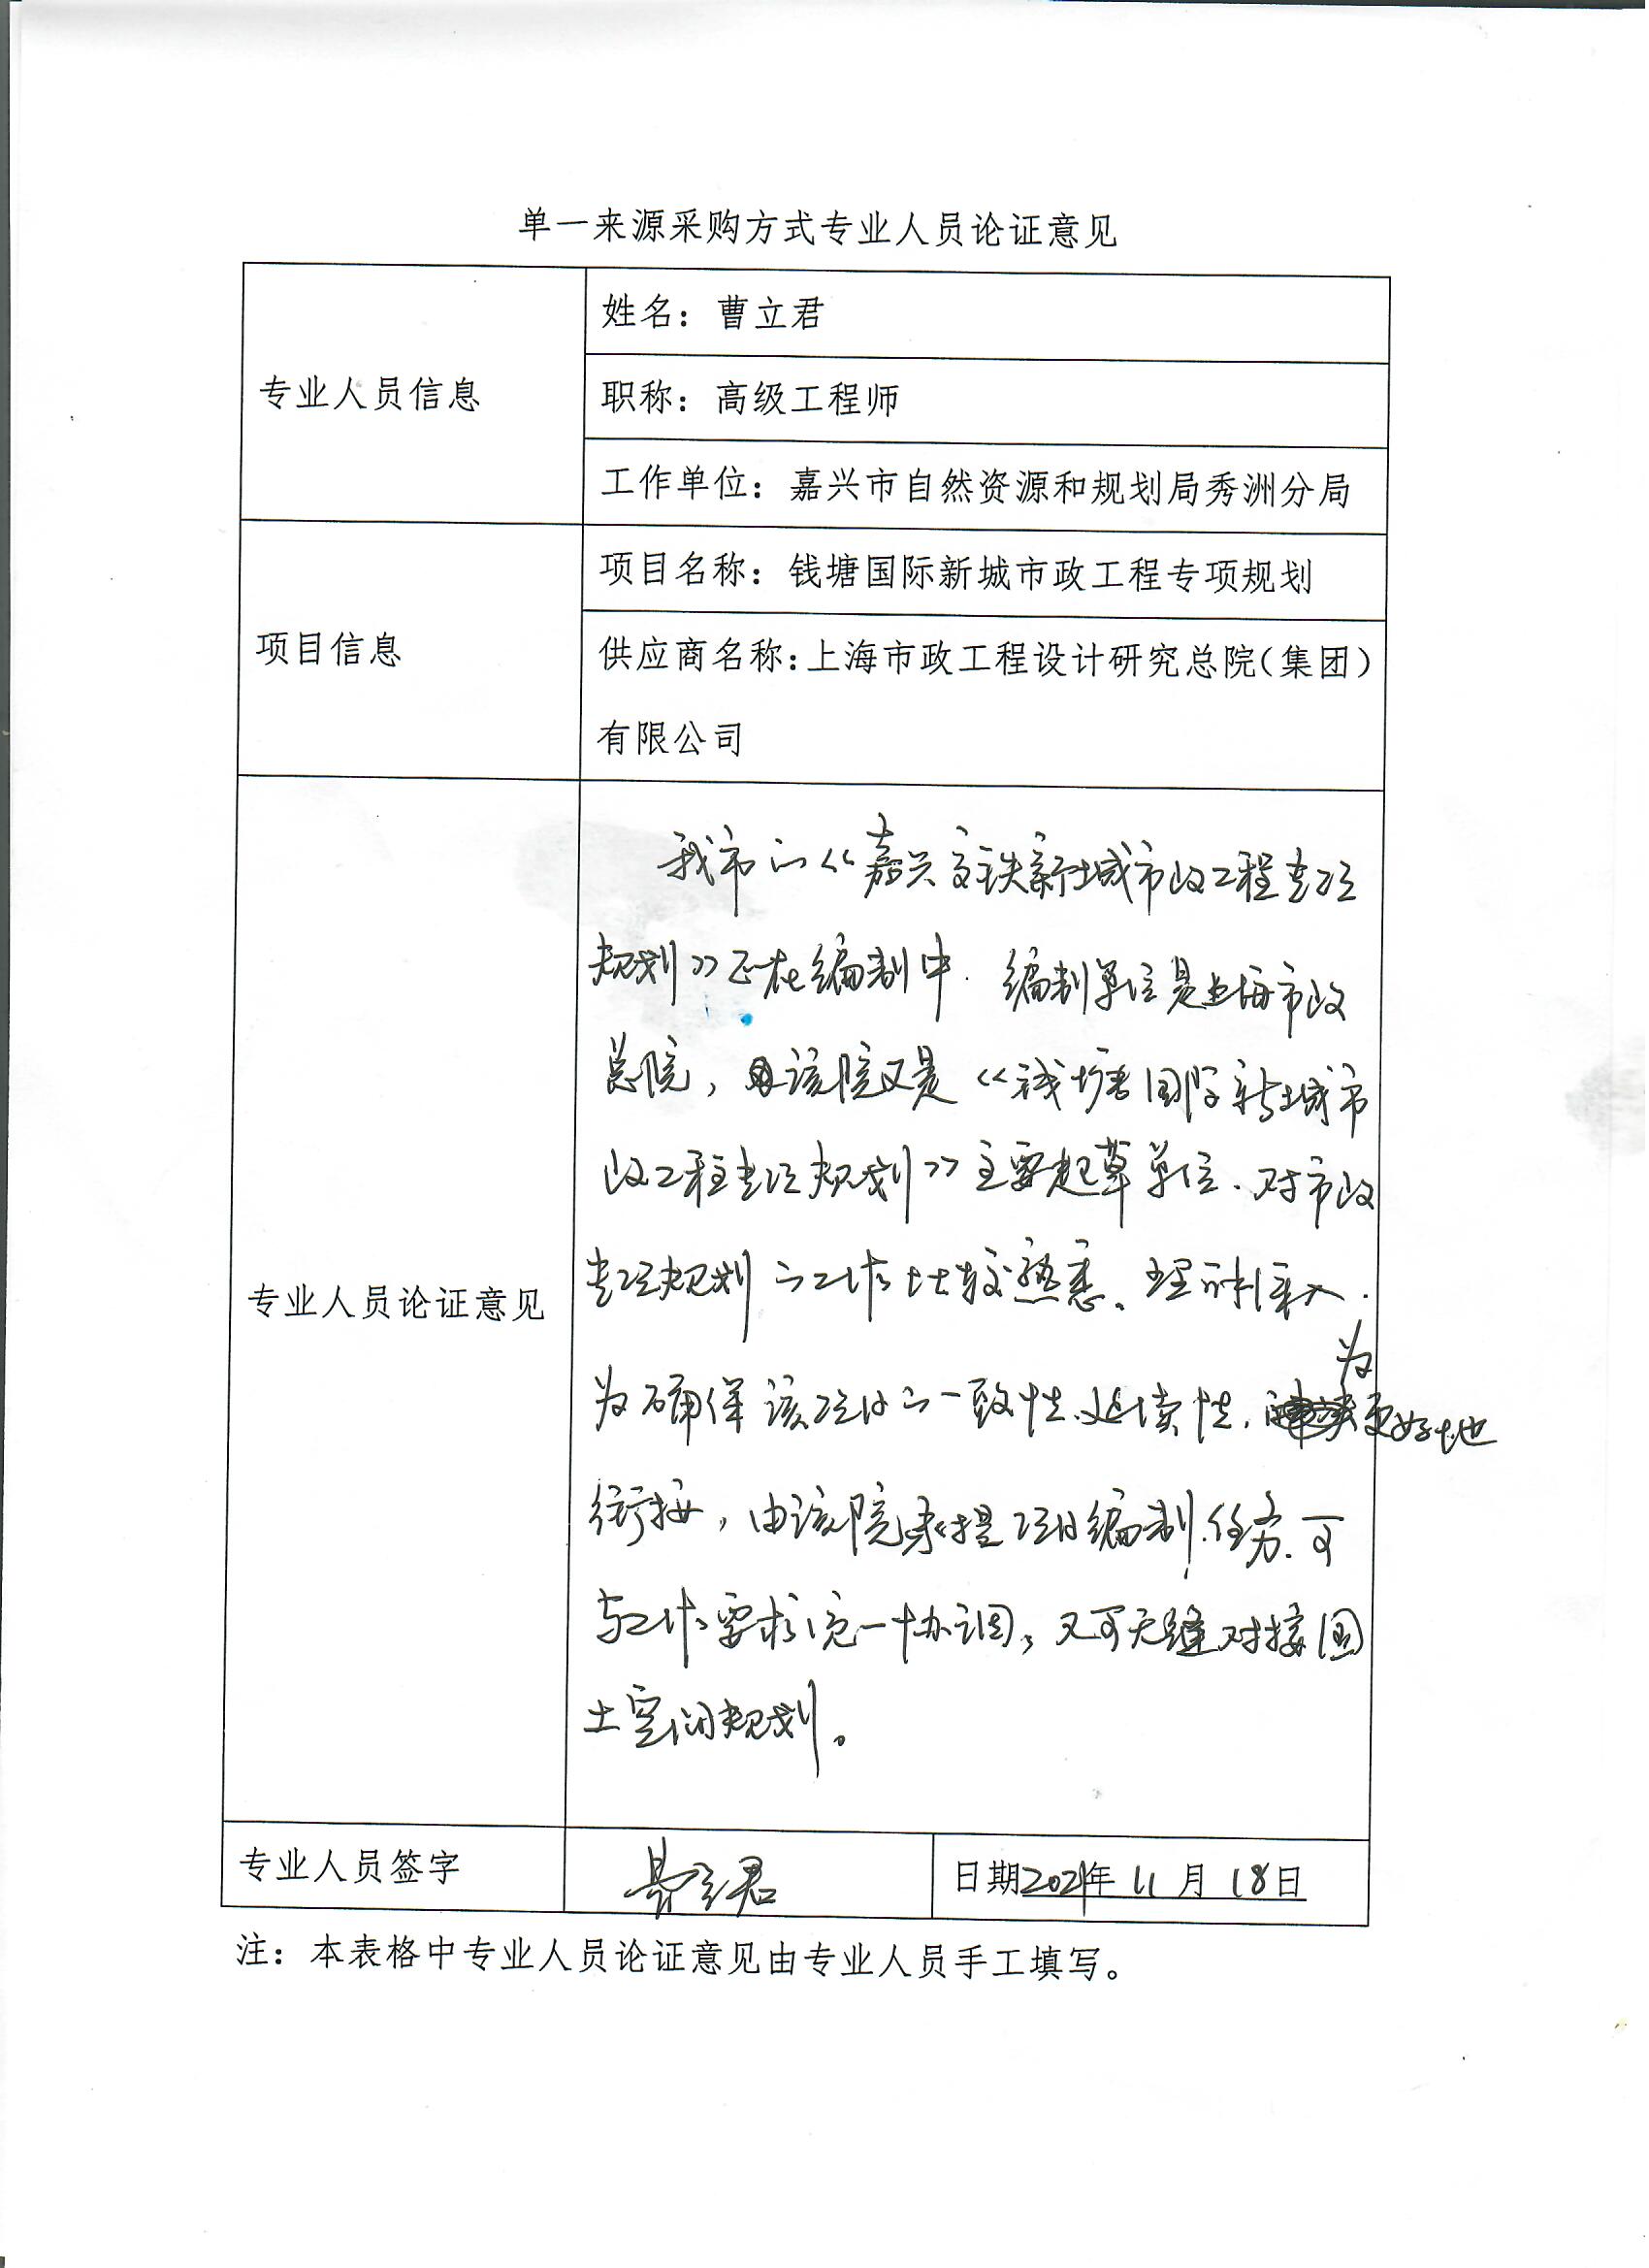 单一来源采购方式专业人员论证意见
专业人员信息
姓名：曹立君
职称：高级工程师
工作单位：嘉兴市自然资源和规划局秀洲分局
项目信息
项目名称：钱塘国际新城市政工程专项规划
供应商名称：上海市政工程设计研究总院（集团）
有限公司
专业人员论证意见
我市的《嘉兴高铁新城市政工程专项
规划》正在编制中．编制单位是上海市政
总院，因该院又是《钱塘国际新城市
政工程专项规划》主要起草单位．对市政
专项规划的工作比较熟悉、理解深入．
为确保该项目的一致性、延续性，为更好地
衔接，由该院承担项目编制任务．可
与工作要求统一协调，又可无缝对接国
土空间规划。
专业人员签字
曹立君
日期2021年 11 月 18日
注：本表格中专业人员论证意见由专业人员手工填写。